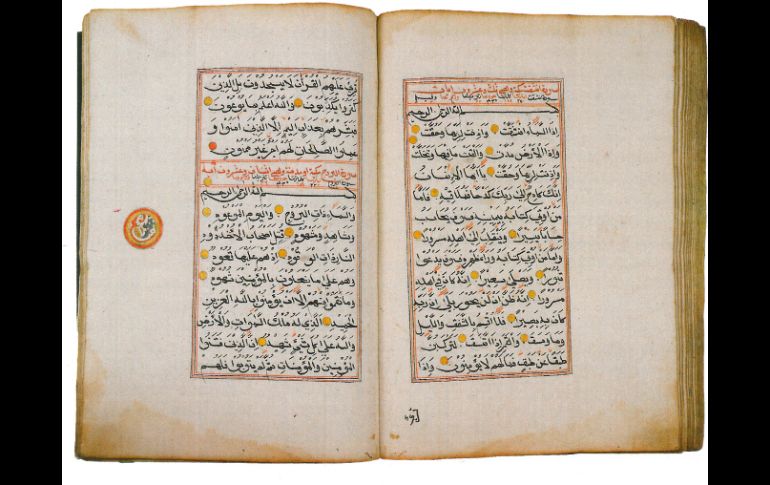 سورة انشقت مكية وهي ثلث وعشرون ايات
بسم الله الرحمن الرحيم
اِذَا السَّمَاءُ انْشَقَّتْ وَاَذِنَتْ لِرَبِّهَا وَحُقَّتْ
وَاِذَا الْاَرْضُ مُدَّتْ وَاَلْقَتْ مَا فِيهَا وَتَخَلَّتْ
وَاَذِنَتْ لِرَبِّهَا وَحُقَّتْ يَا اَيُّهَا الْاِنْسَانُ
اِنَّكَ كَادِحٌ اِلَى رَبِّكَ كَدْحًا فَمُلَاقِيهِ فَاَمَّا
مَنْ اُوتِيَ كِتَابَهُ بِيَمِينِهِ فَسَوْفَ يُحَاسَبُ
حِسَابًا يَسِيرًا وَيَنْقَلِبُ اِلَى اَهْلِهِ مَسْرُورًا
وَاَمَّا مَنْ اُوتِيَ كِتَابَهُ وَرَاءَ ظَهْرِهِ فَسَوْفَ يَدْعُوا
ثُبُورًا وَيَصْلَى سَعِيرًا اِنَّهُ كَانَ فِي اَهْلِهِ
مَسْرُورًا اِنَّهُ ظَنَّ اَنْ لَنْ يَحُورَ بَلَى اِنَّ رَبَّهُ
كَانَ بِهِ بَصِيرًا فَلَا اُقْسِمُ بِالشَّفَقِ وَاللَّيْلِ
وَمَا وَسَقَ وَالْقَمَرِ اِذَا اتَّسَقَ لَتَرْكَبُنَّ
طَبَقًا عَنْ طَبَقٍ فَمَا لَهُمْ لَا يُؤْمِنُونَ وَاِذَا
قُرِئَ عَلَيْهِمُ الْقُرْآنُ لَا يَسْجُدُونَ بَلِ الَّذِينَ
كَفَرُوا يُكَذِّبُونَ وَاللّٰهُ اَعْلَمُ بِمَا يُوعُونَ
فَبَشِّرْهُمْ بِعَذَابٍ اَلِيمٍ اِلَّا الَّذِينَ اٰمَنُوا وَ
عَمِلُوا الصَّالِحَاتِ لَهُمْ اَجْرٌ غَيْرُ مَمْنُونٍ
سورة البروج مكية وهي اثنان وعشرون اية
بسم الله الرحمن الرحيم
وَالسَّمَاءِ ذَاتِ الْبُرُوجِ وَالْيَوْمِ الْمَوْعُودِ
وَشَاهِدٍ وَمَشْهُودٍ قُتِلَ اَصْحَابُ الْاُخْدُودِ
النَّارِ ذَاتِ الْوَقُودِ اِذْ هُمْ عَلَيْهَا قُعُودٌ
وَهُمْ عَلَى مَا يَفْعَلُونَ بِالْمُؤْمِنِينَ شُهُودٌ
وَمَا نَقَمُوا مِنْهُمْ اِلَّا اَنْ يُؤْمِنُوا بِاللّٰهِ الْعَزِيزِ
الْحَمِيدِ الَّذِي لَهُ مُلْكُ السَّمٰوَاتِ وَالْاَرْضِ
وَاللّٰهُ عَلَى كُلِّ شَيْءٍ شَهِيدٌ اِنَّ الَّذِينَ فَتَنُوا
الْمُؤْمِنِينَ وَالْمُؤْمِنَاتِ ثُمَّ لَمْ يَتُوبُوا فَلَهُمْ